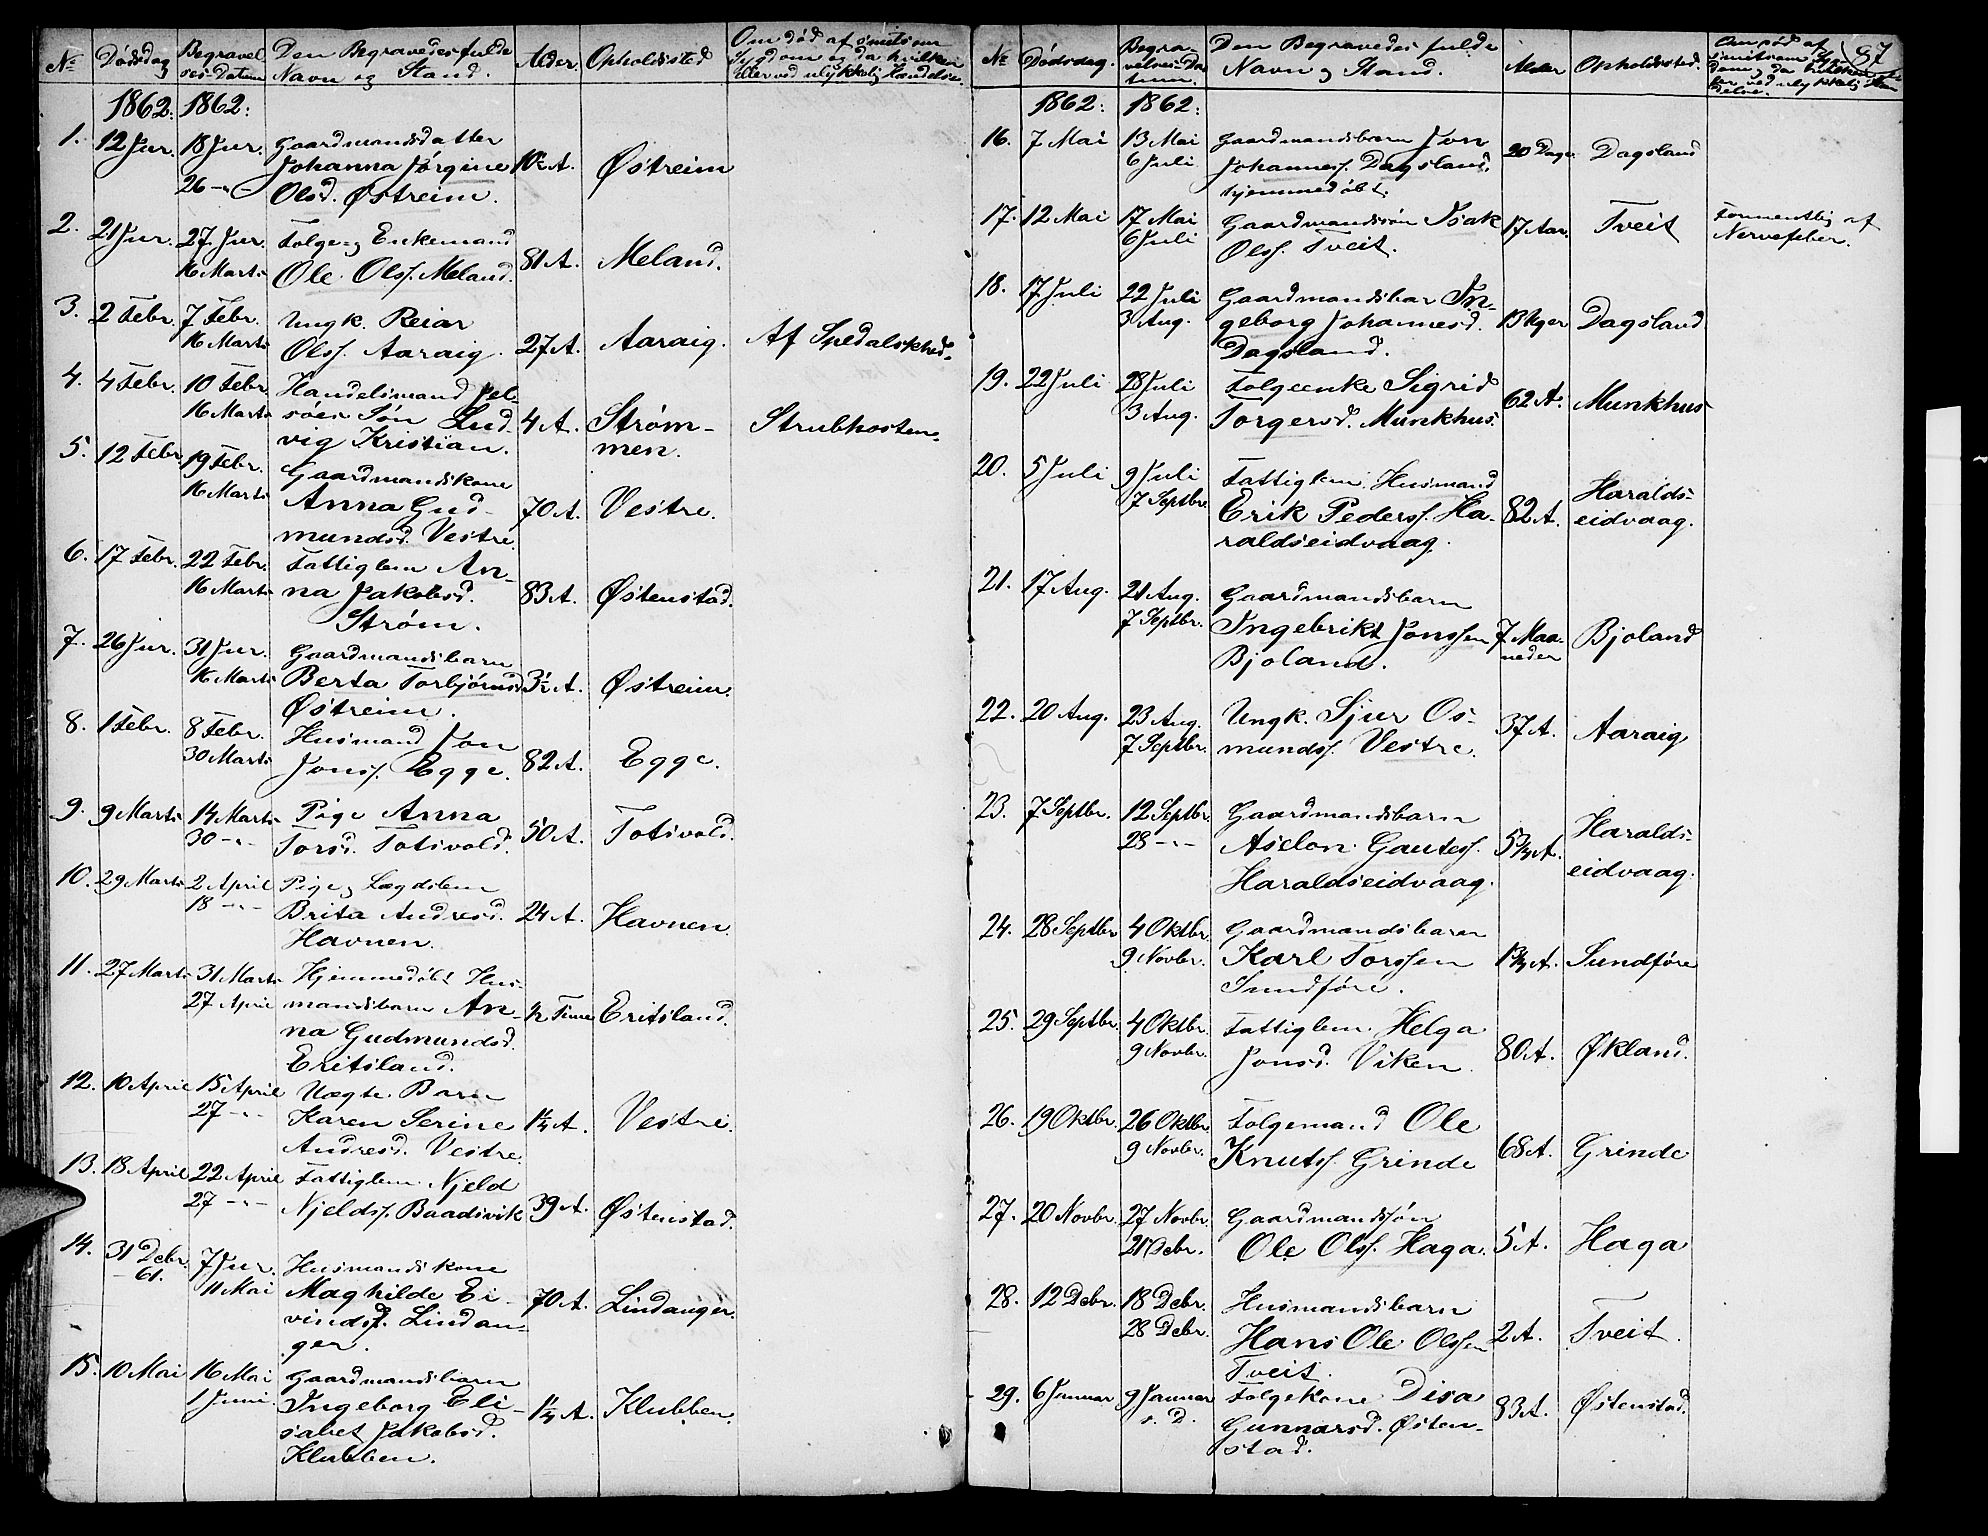 № Dødsdag Begravelses-Datum Den Begravedes fulde Navn og Stand. Alder. Opholdssted Om død af smitsom Sygdom og da hvilken Eller ved ulykkelig Hændelse
1862: 1862:
1. 12 Jnr. 18 Jnr. Gaardmandsdatter
26 -"- Johanna Jørgine 10½ A. Østreim
Olsd. Østreim.
2. 21 Jnr. 27 Jnr. Folge og Enkemand
16 Marts Ole Olss. Meland. 81 A. Meland.
3. 2 Febr. 7 Febr. Ungk. Reiar
16 Marts Olss. Aaraig. 27 A. Aaraig. Af Spedalskhed.
4. 4 Febr. 10 Febr. Handelsmand Jel-
16 Marts søes Søn Lud- 4 A. Strøm- Strubhosten.
vig Kristian. men.
5. 12 Febr. 19 Febr. Gaardmandskone
16 Marts Anna Gud- 70 A. Vestre.
mundsd. Vestre.
6. 17 Febr. 22 Febr. Fattiglem An-
16 Marts na Jakobsd. 83 A. Østenstad.
Strøm.
7. 26 Jnr. 31 Jnr. Gaardmandsbarn
16 Marts Berta Torbjørnsd 3½ A. Østreim.
Østreim.
8. 1 Febr. 8 Febr. Husmand Jon
30 Marts Jonss. Egge. 82 A. Egge.
9. 9 Marts 14 Marts Pige Anna
30 -"- Torsd. Totsvold. 50 A. Totsvold.
10. 29 Marts 2 April Pige, Lægdslem
18 -"- Brita Andresd. 24 A. Havnen.
Havnen.
11. 27 Marts 31 Marts Hjemmedøbt Hus-
27 April mandsbarn An- ½ Time Eritsland.
na Gudmundsd.
Eritsland.
12. 10 April 15 April Uægte Barn
27 -"- Karen Serine 1¼ A. Vestre.
Andresd. Vestre.
13. 18 April 22 April Fattiglem Njeld
27 -"- Njeldss. Baadsvik 39 A. Østenstad.
14. 31 Debr. 7 Jnr. Husmandskone
- 61. 11 Mai Maghilde Ei- 70 A. Lindanger.
vindsd. Lindan-
ger.
15. 10 Mai 16 Mai Gaardmandsbarn
1 Juni Ingeborg Eli- 1¼ A. Klubben.
sabet Jakobsd.
Klubben.
87
№ Dødsdag. Begravelses-Datum. Den Begravedes fulde Navn og Stand. Alder Opholdssted. Om død af smitsom Sygdom, da hvilken eller ved ulykkelig Hændelse.
1862: 1862:
16. 7 Mai 13 Mai Gaardmandsbarn Jon
6 Juli Johanness. Dagsland. 20 Dage Dagsland
hjemmedøbt.
17. 12 Mai 17 Mai Gaardmandssøn Isak 17 Aar. Tveit Formentlig af
6 Juli Olss. Tveit. Nervefeber.
18. 17 Juli 22 Juli Gaardmandsbar In-
3 Aug. geborg Johannesd. 13 Uger Dagsland
Dagsland.
19. 22 Juli 28 Juli Folgeenke Sigrid
3 Aug. Torgersd. Munkhus. 62 A. Munkhus
20. 5 Juli 9 Juli Fattiglem Husmand Haralds-
7 Septbr. Erik Pederss. Ha- 82 A. eidvaag.
raldseidvaag.
21. 17 Aug. 21 Aug. Gaardmandsbarn
7 Septbr. Ingebrikt Jonssen 7 Maa- Bjoland
Bjoland. neder
22. 20 Aug. 23 Aug. Ungk. Sjur Os- 37 A. Aaraig
7 Septbr. mundss. Vestre.
23. 7 Septbr. 12 Septbr. Gaardmandsbarn Haralds-
28 -"- Aselon Gautess. 5¾ A. eidvaag.
Haraldseidvaag.
24. 28 Septbr 4 Oktbr. Gaardmandsbarn
9 Novbr. Karl Torssen 1¾ A. Sundføre
Sundføre.
25. 29 Septbr. 4 Oktbr. Fattiglem Helga
9 Novbr. Jonsd. Viken. 80 A. Økland.
26. 19 Oktbr. 26 Oktbr. Folgemand Ole
9 Novbr. Knutss. Grinde 68 A. Grinde
27. 20 Novbr. 27 Novbr. Gaardmandssøn
21 Debr. Ole Olss. Haga. 5 A. Haga
28. 12 Debr. 18 Debr. Husmandsbarn
28 Debr. Hans Ole Olssen 2 A. Tveit.
Tveit.
29. 6 Januar 9 Januar Folgekone Disa
s. D. Gunnarsd. Østen- 83 A. Østenstad.
stad.